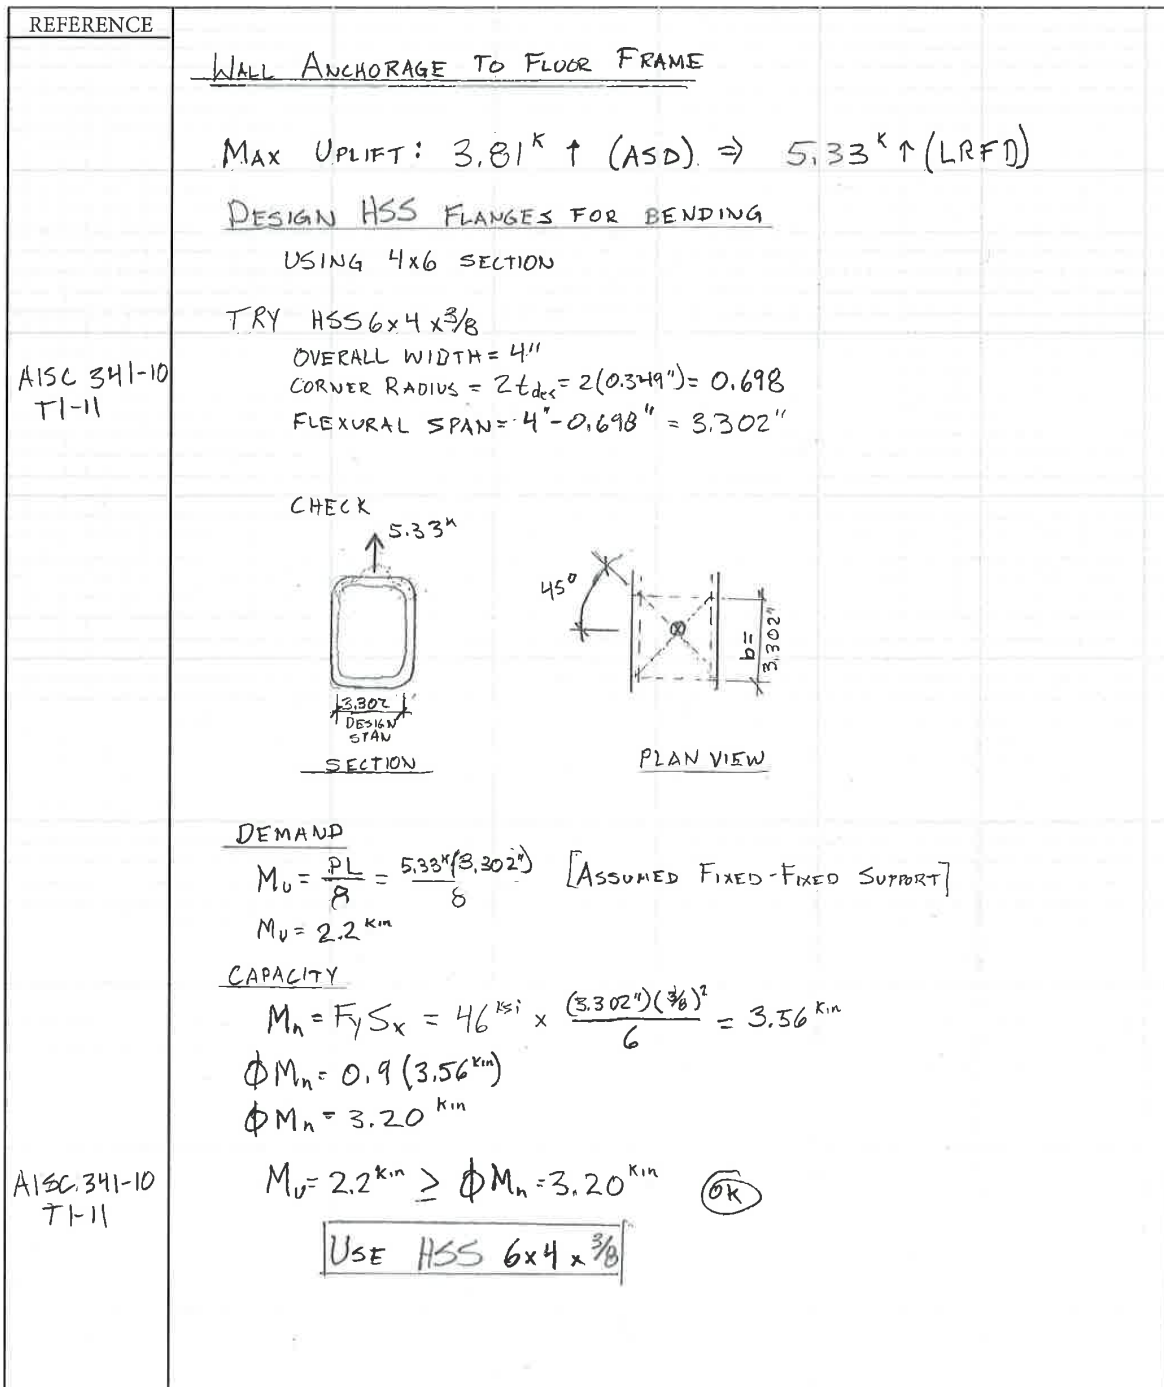 REFERENCE
WALL ANCHORAGE TO FLOOR FRAME
MAX UPLIFT: 3.81ᴷ ↑ (ASD) ⇒ 5.33ᴷ ↑ (LRFD)
DESIGN HSS FLANGES FOR BENDING
USING 4x6 SECTION
TRY HSS 6x4x3/8
OVERALL WIDTH = 4"
AISC 341-10
T1-11
CORNER RADIUS = 2t_des = 2(0.349") = 0.698
FLEXURAL SPAN = 4" - 0.698" = 3.302"
CHECK
5.33ᴷ
45°
b=
3.302"
3.302
DESIGN
SPAN
SECTION
PLAN VIEW
DEMAND
Mu = PL/8 = 5.33ᴷ(3.302")/8 [ASSUMED FIXED-FIXED SUPPORT]
Mu = 2.2 ᴷⁱⁿ
CAPACITY
Mn = Fy Sx = 46 ᴷˢⁱ x (3.302")(3/8)²/6 = 3.56 ᴷⁱⁿ
ϕMn = 0.9 (3.56 ᴷⁱⁿ)
ϕMn = 3.20 ᴷⁱⁿ
AISC 341-10
T1-11
Mu = 2.2 ᴷⁱⁿ ≥ ϕMn = 3.20 ᴷⁱⁿ OK
USE HSS 6x4 x 3/8